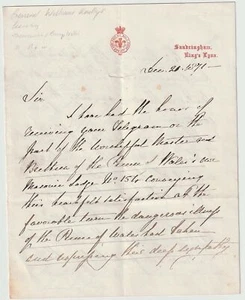 Sandringham,
King's Lynn.
Dec. 21. 1871
Sir
I have had the honor of
receiving your Telegram on the
part of the Worshipful Master and
Brethren of the Prince of Wales's own
Masonic Lodge No. 1556 conveying
their heartfelt satisfaction at the
favorable turn the dangerous illness
of the Prince of Wales had taken
and expressing their deep sympathy